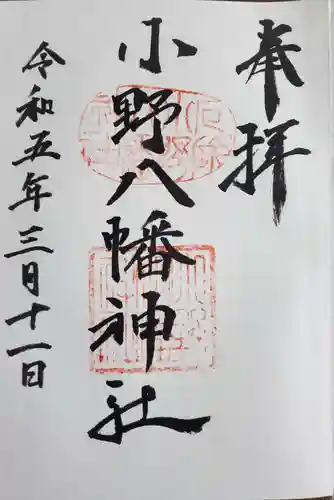 奉拝
小野八幡神社
令和五年三日十一日